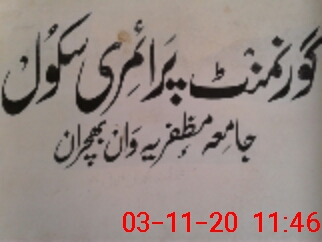 گورنمنٹ پرائمری سکول
جامعہ مظفریہ وان بھچران
03-11-20 11:46